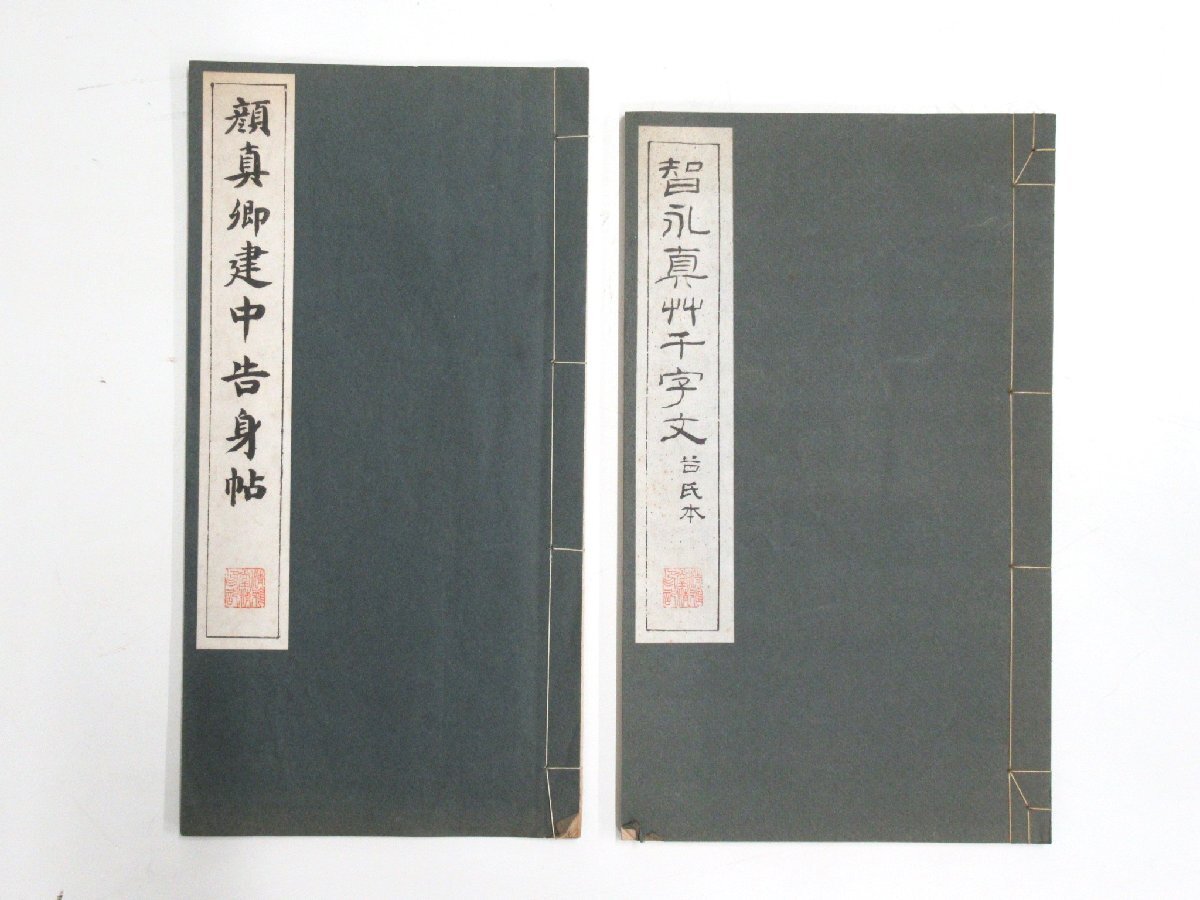 顔真卿建中告身帖
智永真艸千字文
谷氏本